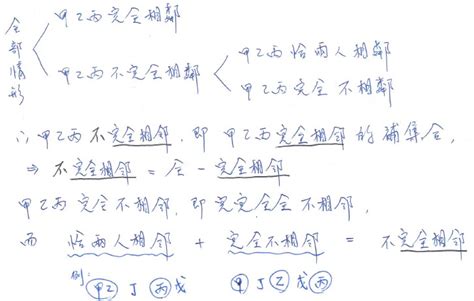 全部情形
甲乙丙完全相鄰
甲乙丙不完全相鄰
甲乙丙恰兩人相鄰
甲乙丙完全不相鄰
∴甲乙丙不完全相邻,即甲乙丙完全相邻的補集合,
⇒ 不完全相邻 = 全 - 完全相邻
甲乙丙完全不相邻,即完完全全不相邻,
而 恰兩人相邻 + 完全不相邻 = 不完全相邻
例:
甲乙丁丙戊 甲丁乙戊丙